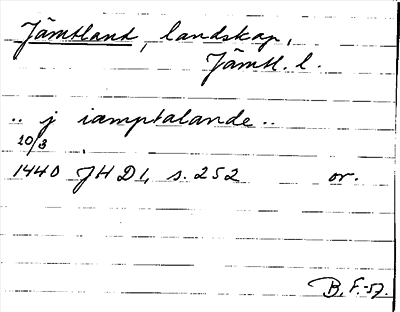 Jämtland, landskap,
Jämtl. l.
.. j iæmptalande ..
20/3
1440 JHD I, s. 252 or.
B. F.-57.